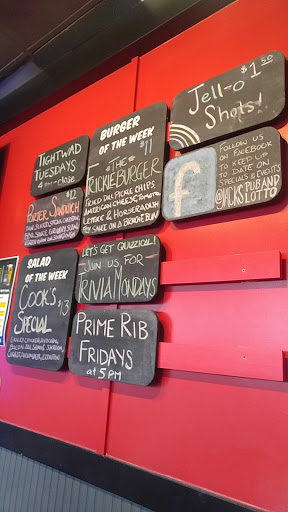 TIGHTWAD
TUESDAYS
4 pm-close
BURGER
OF THE WEEK
$11
*THE*
PICKLEBURGER
FRIED DILL PICKLE CHIPS
AMERICAN CHEESE, TOMATO
LETTUCE & HORSERADISH
MAY SAUCE ON A BRIOCHE BUN
Jell-o $1.50
Shots!
f
FOLLOW US
ON FACEBOOK
TO KEEP UP
TO DATE ON
SPECIALS & EVENTS
PUB AND
SLOTTO
$12
PORTER SANDWICH
SALAD
OF THE WEEK
COOK'S
$13
SPECIAL
LET'S GET QUIZZICAL!
JOIN US FOR
TRIVIA MONDAYS
PRIME RIB
FRIDAYS
at 5 PM